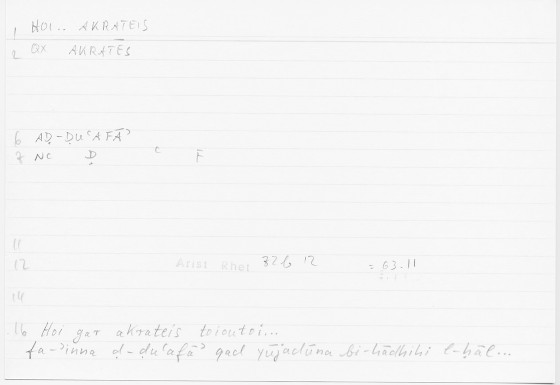 1 HOI.. AKRATEIS
2 ax AKRATĒS
6 AḌ-ḌUʿAFĀʾ
7 NC Ḍ ʿ F
11
12 Arist Rhet 82b 12 = 63.11
14
16 Hoi gar akrateis toioutoi...
fa-ʾinna ḍ-ḍuʿafāʾ qad yūjadūna bi-hādhihi l-ḥāl...